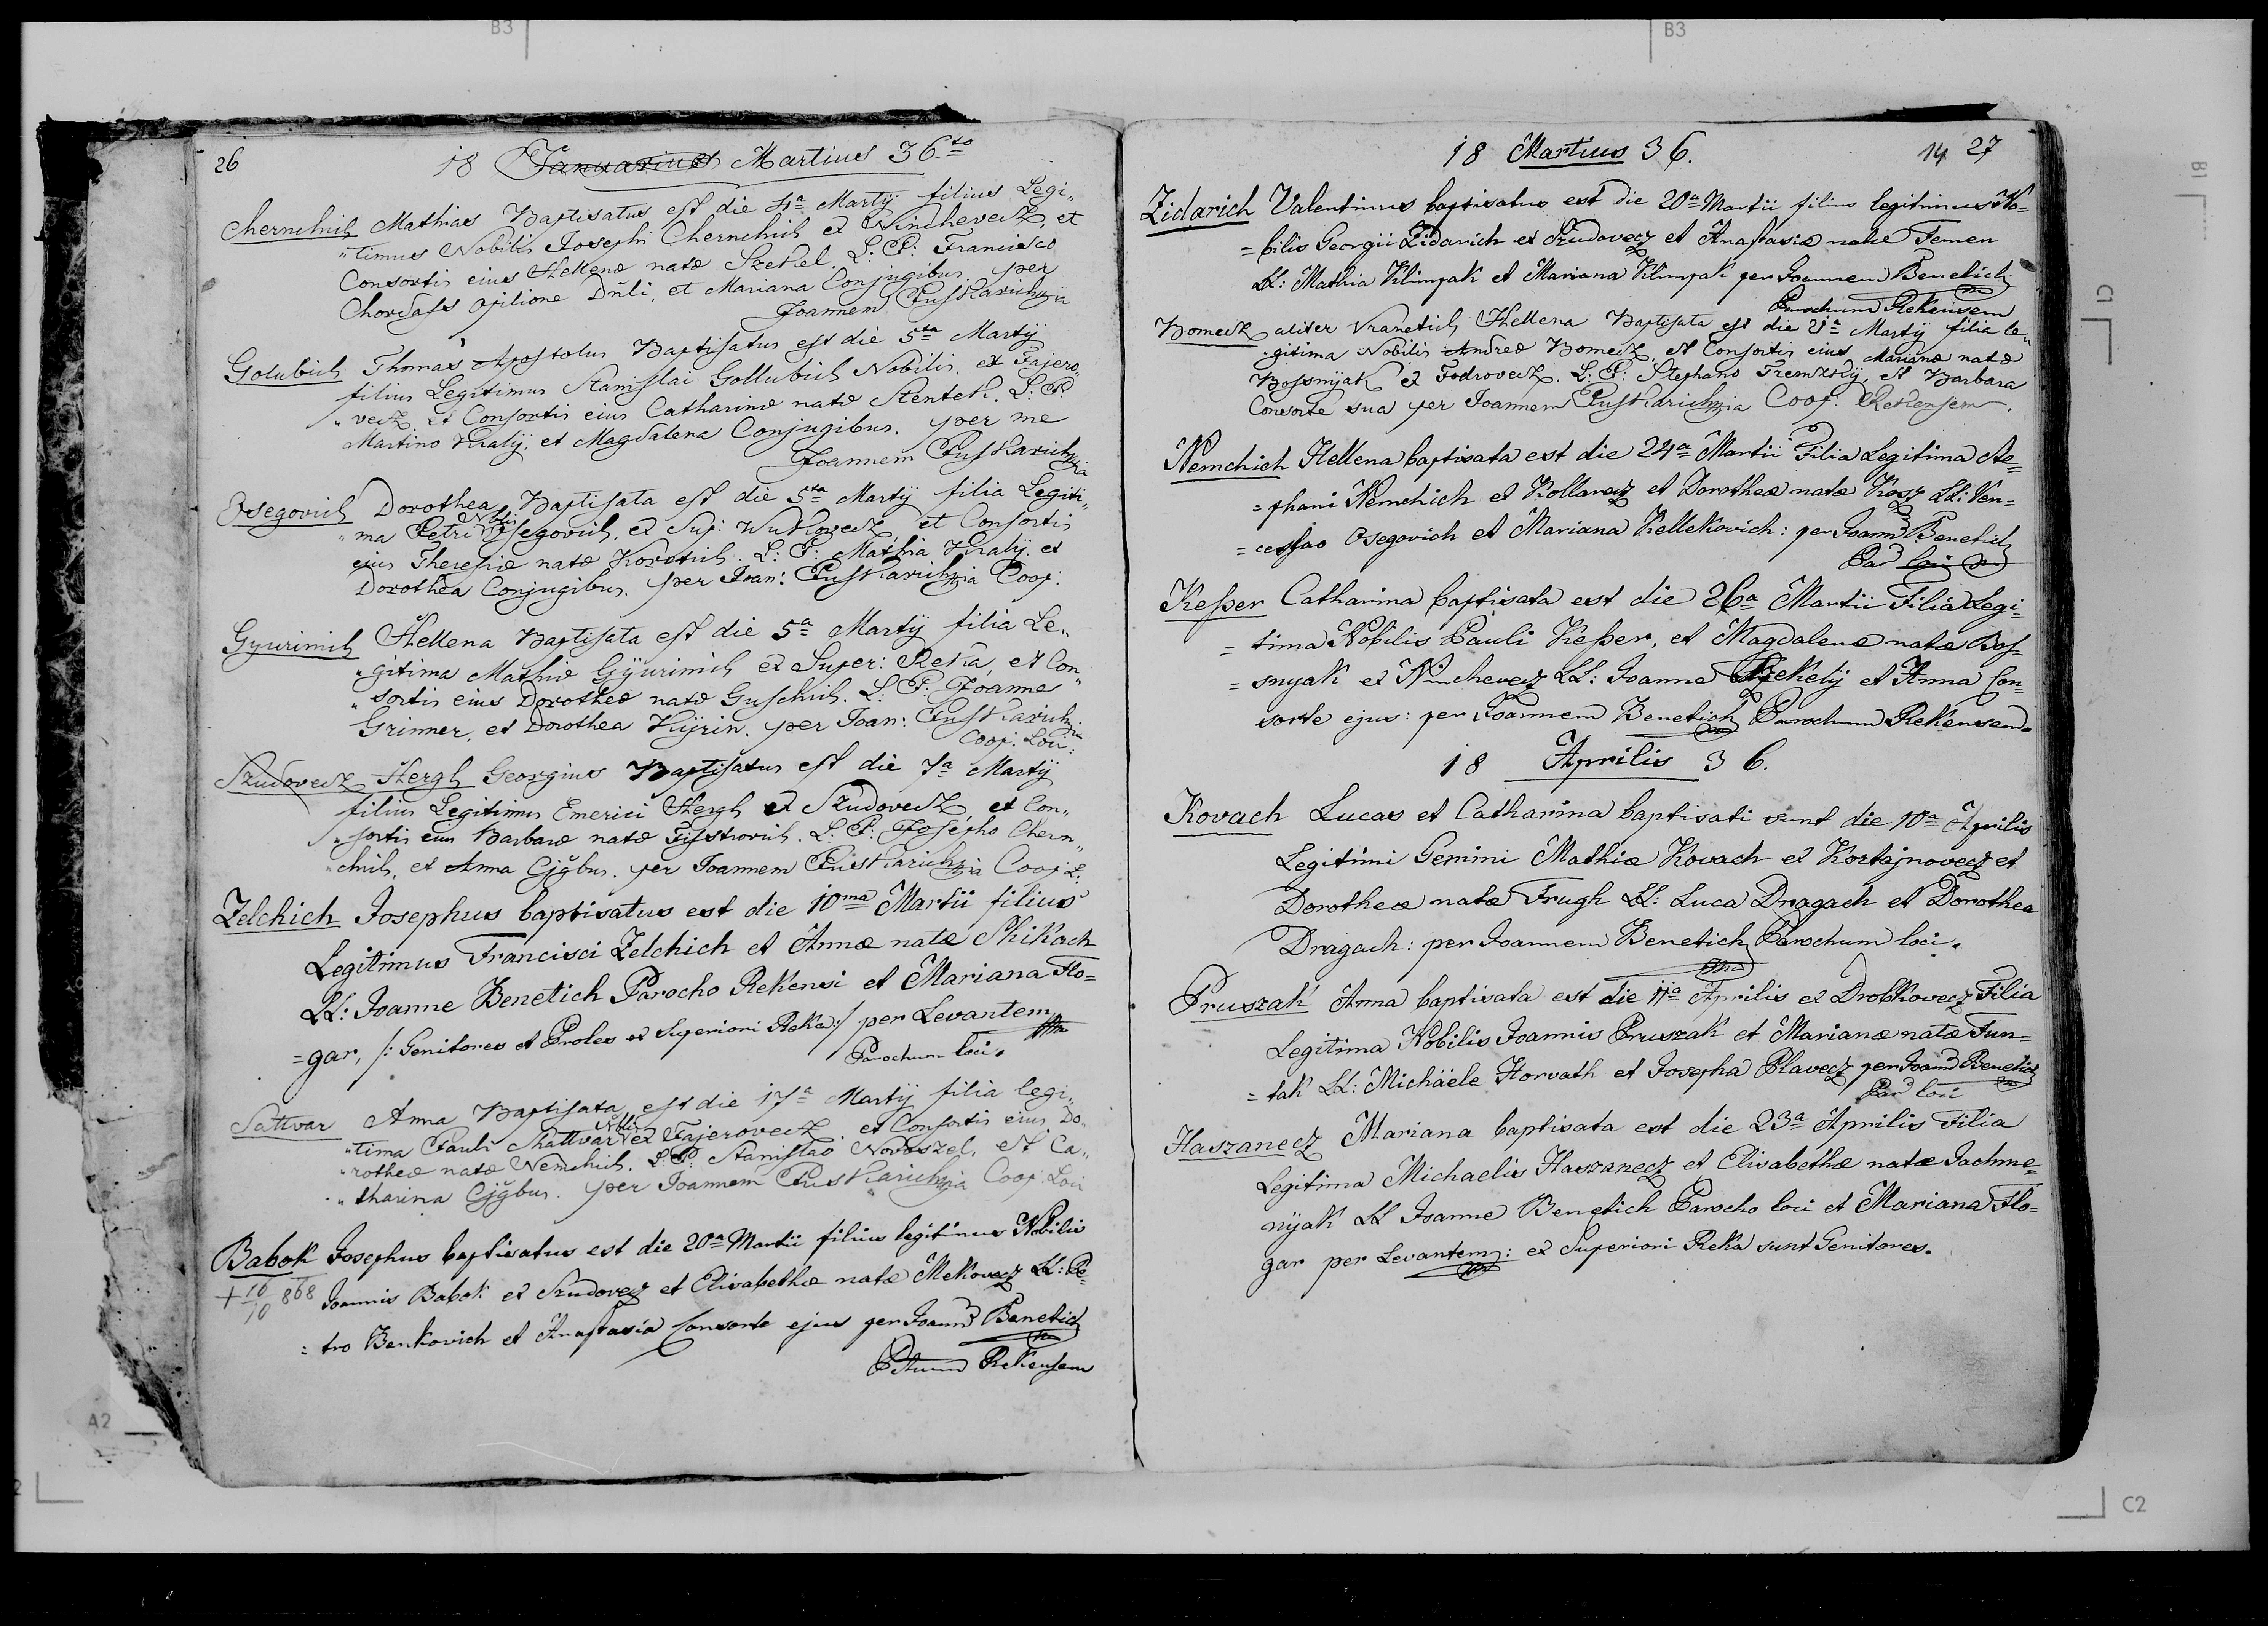 B3
B3
26
18 Januarius Martius 36to
Chernchich Mathias Baptisatus est die 4a Martÿ filius Legi„
„timus Nobilis Josephi Chernchich ex Vinchevecz, et
Consortis eius Hellenæ natæ Szekel. L: P: Francisco
Chordass opilione Dnli, et Mariana Conjugibus. per
Joannem Puskarich
Golubich Thomas Apostolus Baptisatus est die 5ta Martÿ
filius Legitimus Stanislai Gollubich Nobilis, ex Fajero„
„vecz, et Consortis eius Catharinæ natæ Stentek. L: P:
Martino Kralÿ, et Magdalena Conjugibus. per me
Joannem Puskarich
Osegovich Dorothea Baptisata est die 5ta Martÿ filia Legiti„
„ma Petri Nobilis Osegovich, ex Sup: Wukovecz et Consortis
eius Theresiæ natæ Korotich. L: P: Mathia Kralÿ et
Dorothea Conjugibus. per Joan: Puskarich Coop:
Gyurinich Hellena Baptisata est die 5a Martÿ filia Le„
„gitima Mathiæ Gÿurinich ex Super: Reka, et Con„
„sortis eius Dorotheæ natæ Guschich. L: P: Joanne
Grinner, et Dorothea Kÿrin. per Joan: Puskarich
Coop: Loci:
Szudovecz Hergh Georgius Baptisatus est die 7a Martÿ
filius Legitimus Emerici Hergh ex Szudovecz, et Con„
„sortis eius Barbaræ natæ Fistrovich. L: P: Josepho Chern„
„chich, et Anna Cjgbus. per Joannem Puskarich Coop: L:
Zelchich Josephus baptisatus est die 10ma Martii filius
Legitimus Francisci Zelchich et Annæ natæ Skikach
LL: Joanne Benetich Parocho Rekensi et Mariana Flo=
=gar, /: Genitores et Proles ex Superiori Reka :/ per Levantem
Parochum loci.
Sattvar Anna Baptisata est die 17a Martÿ filia legi„
„tima Pauli Shattvar Nobilis ex Fajerovecz et Consortis eius Do„
„rotheæ natæ Nemchich. L: P: Stanislao Novoszel, et Ca„
„tharina Cjgbus. per Joannem Puskarich Coop: Loci
Babok Josephus baptisatus est die 20a Martii filius legitimus Nobilis
+ 10/10 868 Joannis Babok ex Szudovecz et Elisabethæ natæ Mekovecz LL: Pe=
=tro Benkovich et Anastasia Consorte ejus per Joann Benetich
Rekensem
18 Martius 36.
14 27
Zidarich Valentinus baptisatus est die 20a Martii filius legitimus No=
=bilis Georgii Zidarich ex Szudovecz et Anastasiæ natæ Femen
LL: Mathia Klinpak et Mariana Klinpak per Joannem Benetich
Parochum Rekensem
Bomecz aliter Vranetich Hellena Baptisata est die 21a Martÿ filia le„
„gitima Nobilis Andreæ Bomecz, et Consortis eius Marianæ natæ
Bossnyak ex Fodrovecz. L: P: Stephano Fremzkÿ, et Barbara
Consorte sua per Joannem Puskarich Coop: Rekensem.
Nemchich Hellena baptisata est die 24a Martii Filia Legitima Ste=
=phani Nemchich ex Kollarecz et Dorotheæ natæ Kosz LL: Ven=
=ceslao Osegovich et Mariana Kellekovich: per Joann Benetich
Par loci
Kesser Catharina baptisata est die 26a Martii Filia Legi=
=tima Nobilis Pauli Kesser, et Magdalenæ natæ Bos=
=snyak ex Vinchevecz LL: Joanne Szekelÿ et Anna Con=
sorte ejus: per Joannem Benetich Parochum Rekensem.
18 Aprilis 36.
Kovach Lucas et Catharina baptisati sunt die 10a Aprilis
Legitimi Gemini Mathiæ Kovach ex Kostajnovecz et
Dorotheæ natæ Frugh LL: Luca Dragach et Dorothea
Dragach: per Joannem Benetich Parochum loci.
Pruszak Anna baptisata est die 11a Aprilis ex Drobkovecz Filia
Legitima Nobilis Joannis Pruszak et Marianæ natæ Fun=
=tak LL: Michäele Horvath et Josepha Plavecz per Joann Benetich
Par loci
Haszanecz Mariana baptisata est die 23a Aprilis Filia
Legitima Michaelis Haszanecz et Elisabethæ natæ Jachme=
nÿak LL Joanne Benetich Parocho loci et Mariana Flo=
gar per Levantem: ex Superiori Reka sunt Genitores.
B1
C1
A2
C2